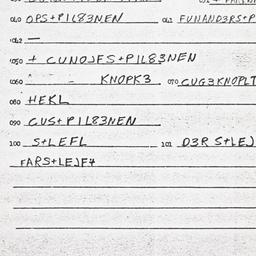 040 OPS+PIL83NEN 041 FUNAND3RS+P
042 —
050 + CUNOJFS+PIL83NEN
060 - KNOPK3 070 CUG3KNOPLT
080 HEKL
090 CUS+PIL83NEN
100 S+LEFL 101 D3R S+LEJ
FARS+LEJF4